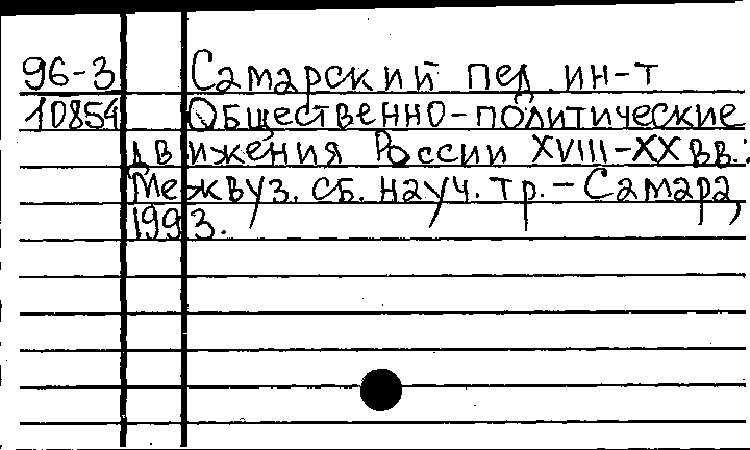 96-3 Самарский пед. ин-т
10854 Общественно-политические
движения России XVIII-XX вв.:
Межвуз. сб. науч. тр. - Самара,
1993.